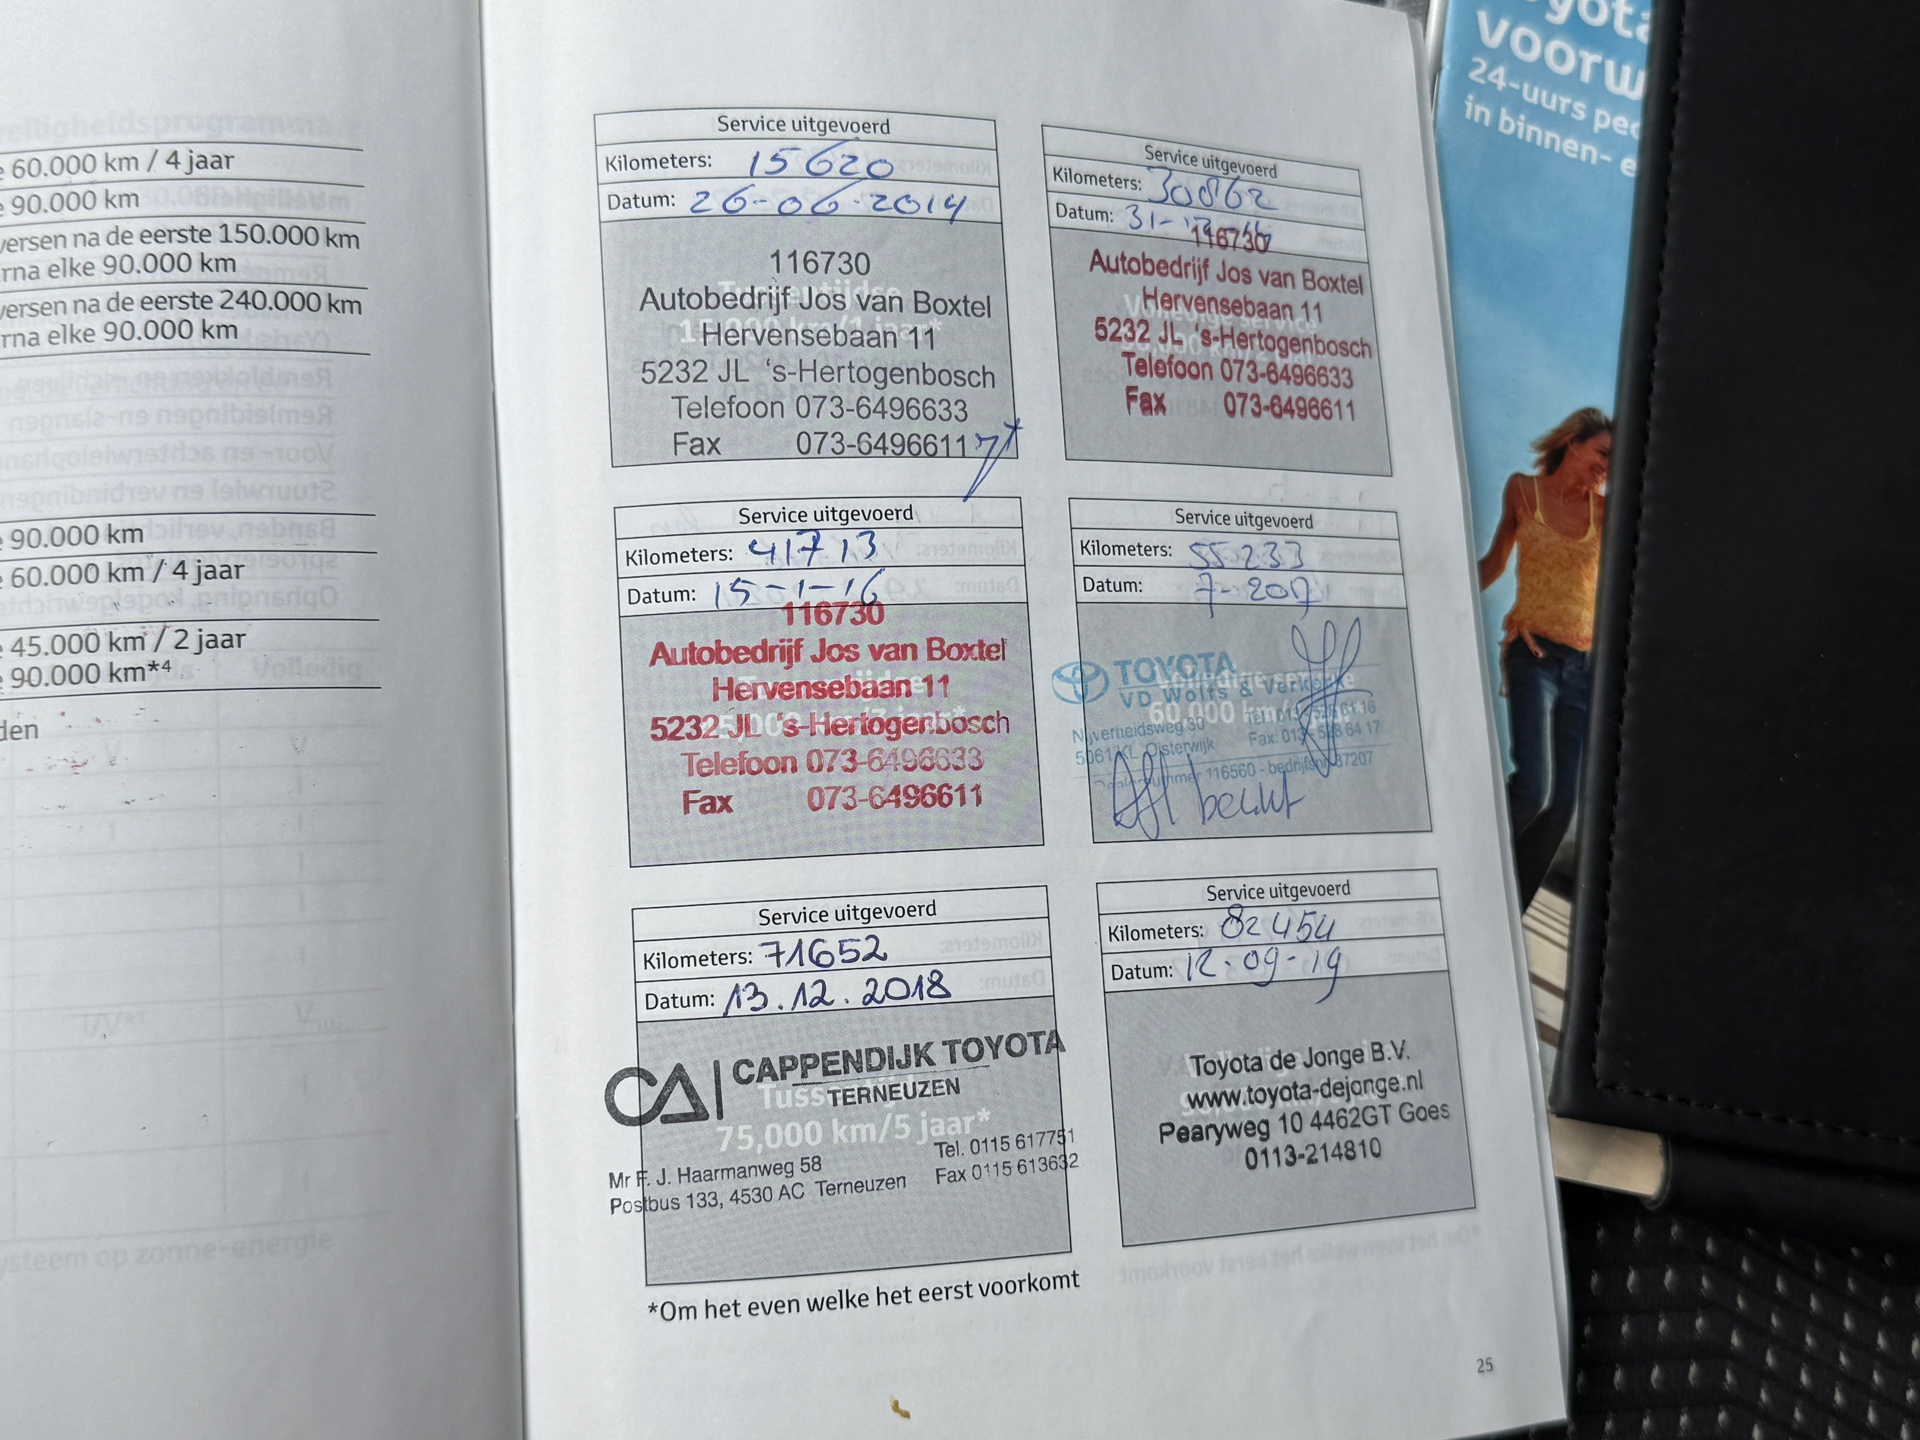 60.000 km / 4 jaar
90.000 km
versen na de eerste 150.000 km
rna elke 90.000 km
versen na de eerste 240.000 km
rna elke 90.000 km
90.000 km
60.000 km / 4 jaar
45.000 km / 2 jaar
90.000 km*4
den
Service uitgevoerd
Kilometers: 15620
Datum: 26-06-2014
116730
Autobedrijf Jos van Boxtel
Hervensebaan 11
5232 JL 's-Hertogenbosch
Telefoon 073-6496633
Fax 073-6496611
Service uitgevoerd
Kilometers: 30862
Datum: 31-
116730
Autobedrijf Jos van Boxtel
Hervensebaan 11
5232 JL 's-Hertogenbosch
Telefoon 073-6496633
Fax 073-6496611
Service uitgevoerd
Kilometers: 41713
Datum: 15-1-16
116730
Autobedrijf Jos van Boxtel
Hervensebaan 11
5232 JL 's-Hertogenbosch
Telefoon 073-6496633
Fax 073-6496611
Service uitgevoerd
Kilometers: 55233
Datum: 7-2017
TOYOTA
VD Wolfs & Verk
60.000 km/
Nijverheidsweg 30
5061 KL Oisterwijk
116560 - bedrijfsnr. 37207
Service uitgevoerd
Kilometers: 71652
Datum: 13.12.2018
CA CAPPENDIJK TOYOTA
TERNEUZEN
75,000 km/5 jaar*
Mr F. J. Haarmanweg 58 Tel. 0115 617751
Postbus 133, 4530 AC Terneuzen Fax 0115 613632
Service uitgevoerd
Kilometers: 82454
Datum: 12-09-19
Toyota de Jonge B.V.
www.toyota-dejonge.nl
Pearyweg 10 4462GT Goes
0113-214810
*Om het even welke het eerst voorkomt
25
voorw
24-uurs pe
in binnen- e